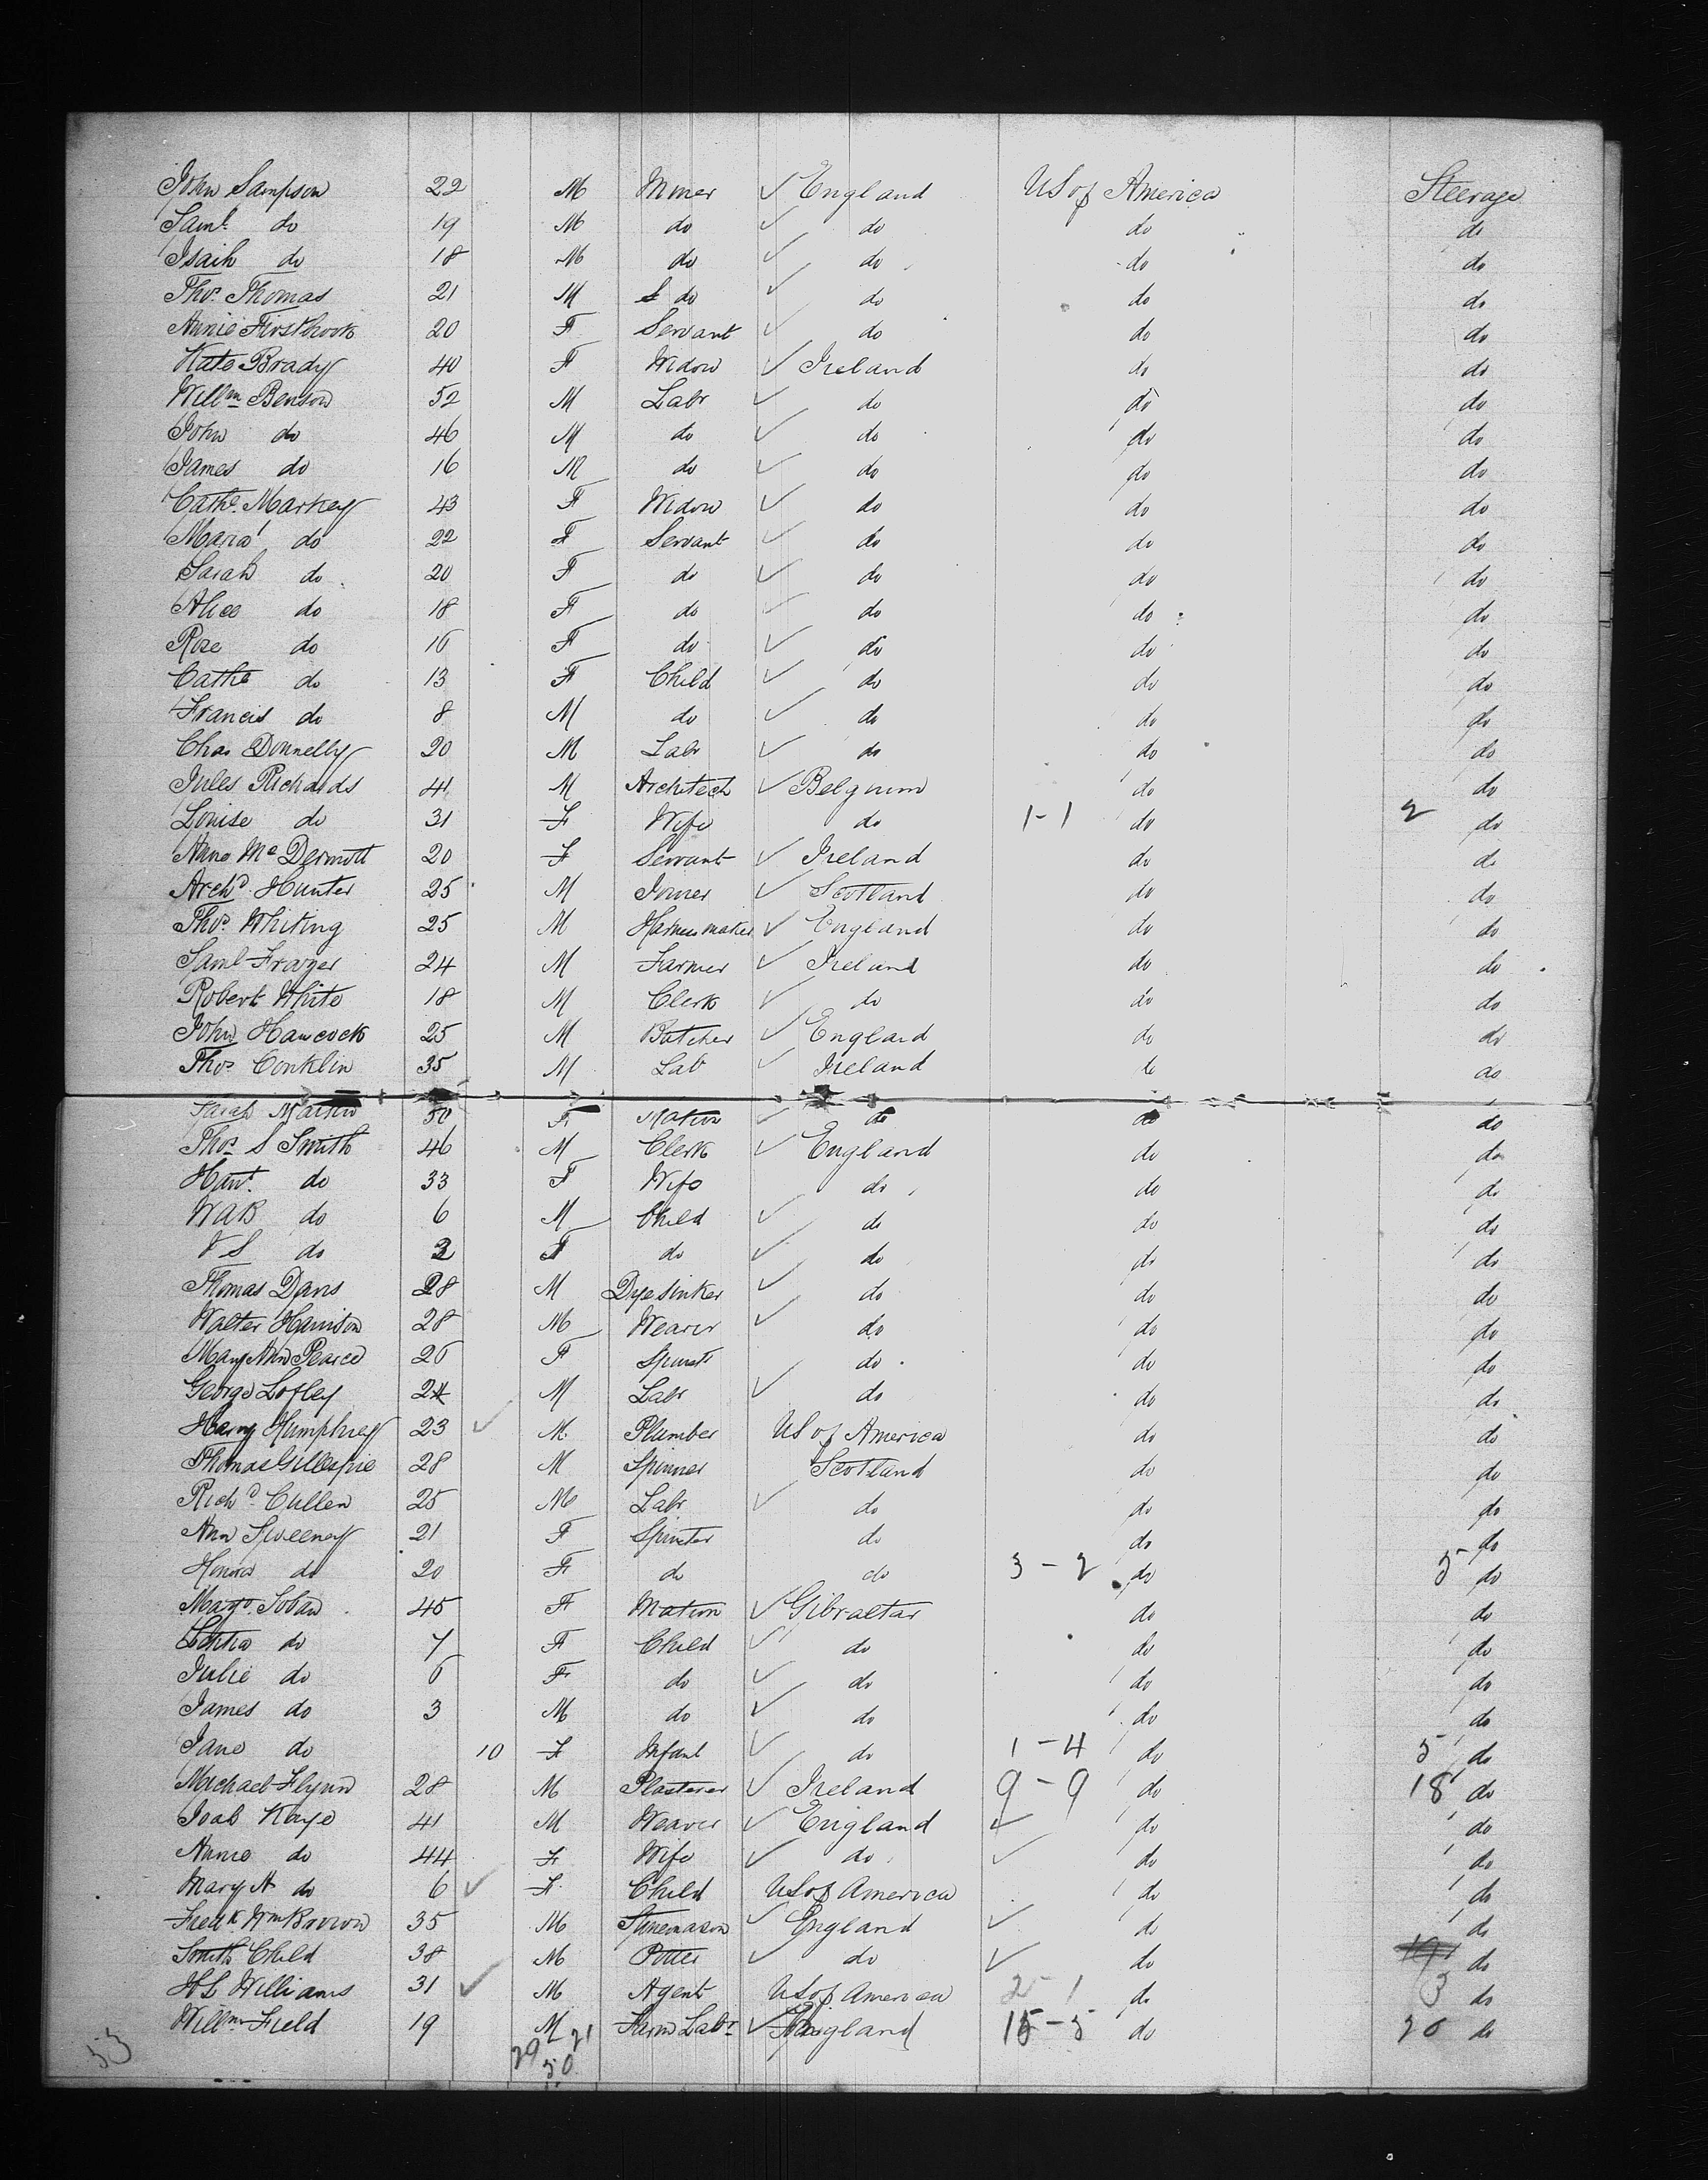 John Sampson 22 M Miner ✓ England US of America Steerage
Saml do 19 M do ✓ do do do
Isaih do 18 M do ✓ do do do
Thos Thomas 21 M do ✓ do do do
Annie 20 F Servant ✓ do do do
Kate Brady 40 F Widow ✓ Ireland do do
Willm Benson 52 M Labr ✓ do do do
John do 46 M do ✓ do do do
James do 16 M do ✓ do do do
Cathe Markey 43 F Widow ✓ do do do
Maria do 22 F Servant ✓ do do do
Sarah do 20 F do ✓ do do do
Alice do 18 F do ✓ do do do
Rose do 16 F do ✓ do do do
Cathe do 13 F Child ✓ do do do
Francis do 8 M do ✓ do do do
Chas Donnelly 20 M Labr ✓ do do do
Jules Richards 41 M Architech ✓ Belgium do do
Louise do 31 F Wife do 1-1 do 2 do
Anne McDermott 20 F Servant ✓ Ireland do do
Archd Hunter 25 M Joiner ✓ Scotland do do
Thos Whiting 25 M Harness maker ✓ England do do
Saml Frazer 24 M Farmer ✓ Ireland do do
Robert White 18 M Clerk ✓ do do do
John Hancock 25 M Butcher ✓ England do do
Thos Conklin 35 M Lab ✓ Ireland do do
Sarah 50 F Matron ✓ do do do
Thos S Smith 46 M Clerk ✓ England do do
Hant do 33 F Wife do do do
WAB do 6 M Child ✓ do do do
V S do 3 F do ✓ do do do
Thomas Davis 28 M Dyesinker ✓ do do do
Walter Harrison 28 M Weaver ✓ do do do
Mary Ann Pearce 26 F Spinstr do do do
George Lofley 24 M Labr ✓ do do do
Harry Humphrey 23 ✓ M Plumber US of America do do
Thomas Gillespie 28 M Spinner Scotland do do
Richd Cullen 25 M Labr ✓ do do do
Ann Sweeney 21 F Spinster do do do
Honora do 20 F do do 3-2 do 5 do
Margt 45 F Matron ✓ Gibraltar do do
do 7 F Child ✓ do do do
Julie do 6 F do ✓ do do do
James do 3 M do ✓ do do do
Jane do 10 F Infant ✓ do 1-4 do 5 do
Michael Flynn 28 M Plasterer ✓ Ireland 9-9 do 18 do
Joab Kaye 41 M Weaver ✓ England ✓ do do
Annie do 44 F Wife ✓ do ✓ do do
Mary A do 6 ✓ F Child US of America do do
Fredk Wm Brown 35 M Stonemason ✓ England ✓ do do
Smith Child 38 M Potter ✓ do ✓ do do
H L Williams 31 ✓ M Agent US of America 2-1 do 3 do
Willm Field 19 M Farm Labr ✓ England 15-5 do 20 do
29 21
50
53